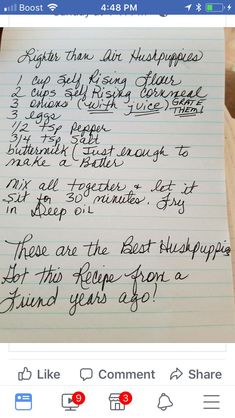 Boost 4:48 PM
Lighter Than Air Huskpuppies
1 cup Self Rising Flour
2 cups Self Rising Cornmeal
3 onions (with juice) GRATE THEM!
3 eggs
1/2 tsp Pepper
3/4 tsp Salt
buttermilk (Just enough to
make a Batter
Mix all together & let it
Sit for 30 minutes. Fry
in Deep oil
These are the Best Huskpuppies
Got this Recipe from a
Friend years ago!
Like Comment Share
9 3